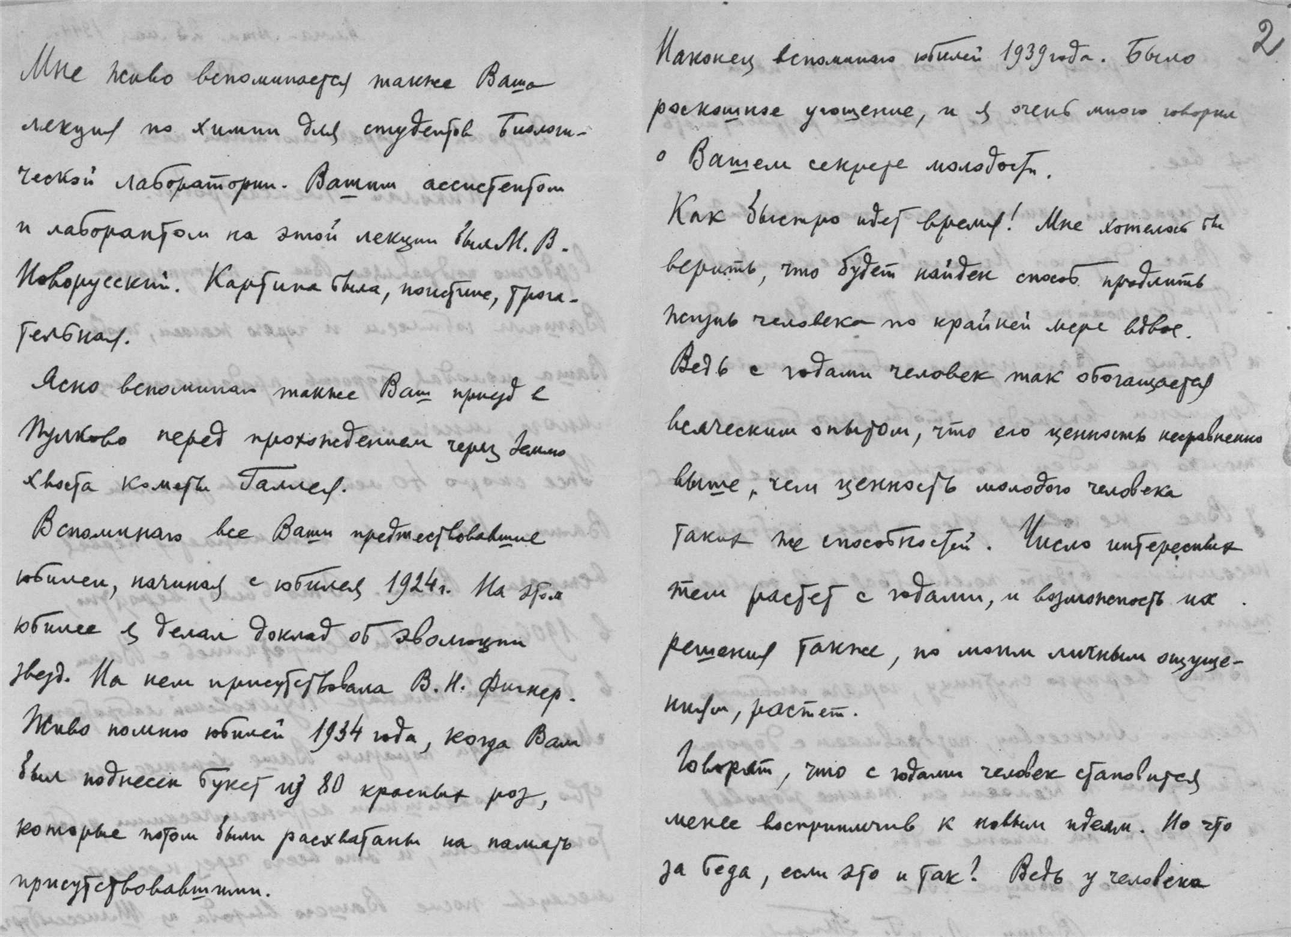 Мне живо вспоминается также Ваша
лекция по химии для студентов Биологи-
ческой лаборатории. Вашим ассистентом
и лаборантом на этой лекции был М. В.
Новорусский. Картина была, поистине, трога-
тельная.
Ясно вспоминаю также Ваш приезд в
Пулково перед прохождением через Землю
хвоста кометы Галлея.
Вспоминаю все Ваши предшествовавшие
юбилеи, начиная с юбилея 1924 г. На этом
юбилее я делал доклад об эволюции
звезд. На нем присутствовала В. Н. Фигнер.
Живо помню юбилей 1934 года, когда Вам
был поднесен букет из 80 красных роз,
которые потом были расхватаны на память
присутствовавшими.
2
Наконец вспоминаю юбилей 1939 года. Было
роскошное угощение, и я очень много говорил
о Вашем секрете молодости.
Как быстро идет время! Мне хотелось бы
верить, что будет найден способ продлить
жизнь человека по крайней мере вдвое.
Ведь с годами человек так обогащается
всяческим опытом, что его ценность несравненно
выше, чем ценность молодого человека
таких же способностей. Число интересных
тем растет с годами, и возможность их
решения также, по моим личным ощуще-
ниям, растет.
Говорят, что с годами человек становится
менее восприимчив к новым идеям. Но что
за беда, если это и так? Ведь у человека